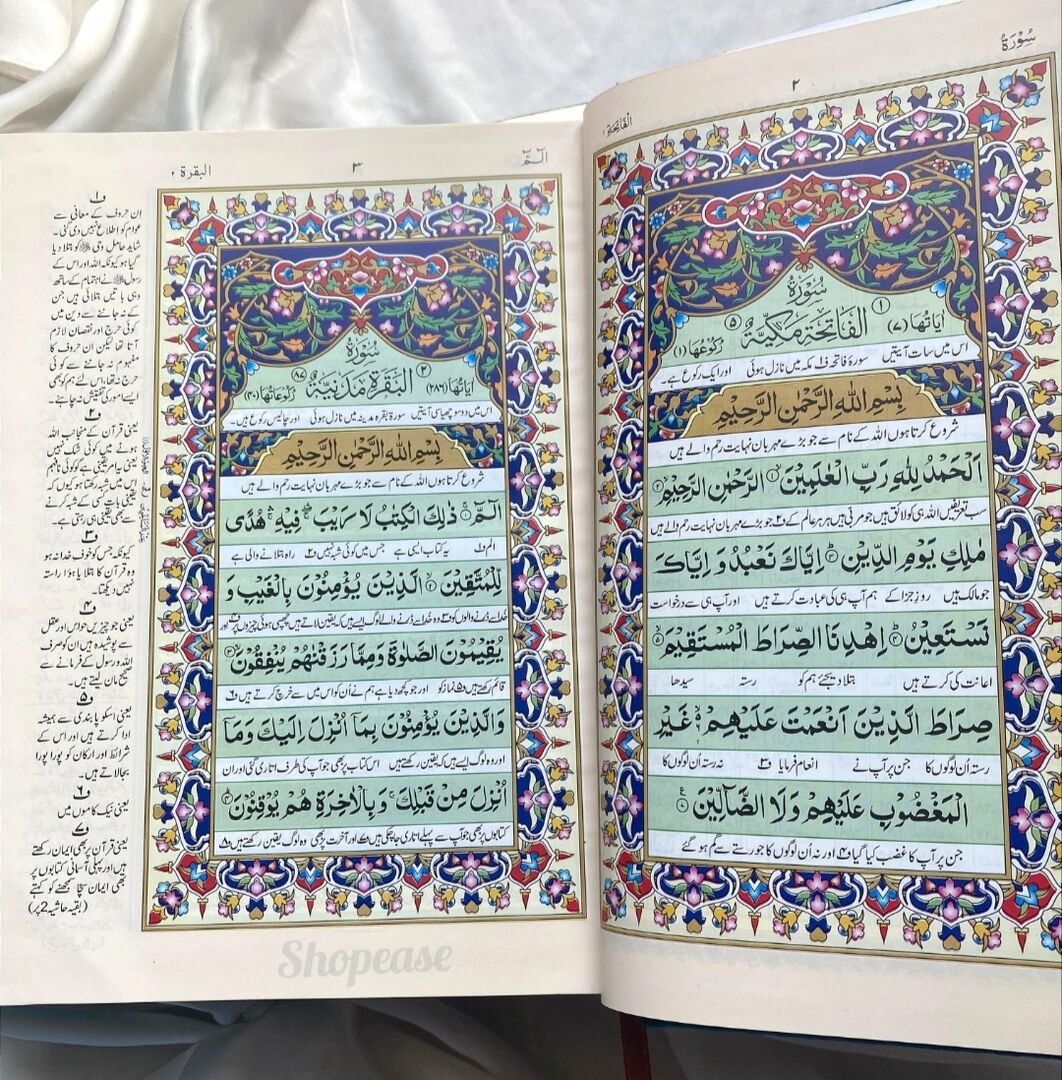 سُوْرَةُ
٢
الْفَاتِحَةِ ١
سُوْرَةُ
١
اٰيَاتُهَا (٧) الْفَاتِحَةِ مَكِّيَّةٌ ٥ رُكُوْعُهَا (١)
اس میں سات آیتیں سورۂ فاتحہ ف۱ مکہ میں نازل ہوئی اور ایک رکوع ہے۔
بِسْمِ اللهِ الرَّحْمٰنِ الرَّحِيْمِ
شروع کرتا ہوں اللہ کے نام سے جو بڑے مہربان نہایت رحم والے ہیں
اَلْحَمْدُ لِلّٰهِ رَبِّ الْعٰلَمِيْنَ ۙ١ الرَّحْمٰنِ الرَّحِيْمِ ۙ٢
سب تعریفیں اللہ ہی کو لائق ہیں جو مربی ہیں ہر ہر عالم کے ف۲ جو بڑے مہربان نہایت رحم والے ہیں
مٰلِكِ يَوْمِ الدِّيْنِ ؕ٣ اِيَّاكَ نَعْبُدُ وَ اِيَّاكَ
جو مالک ہیں روزِ جزا کے ہم آپ ہی کی عبادت کرتے ہیں اور آپ ہی سے درخواست
نَسْتَعِيْنُ ؕ٤ اِهْدِنَا الصِّرَاطَ الْمُسْتَقِيْمَ ۙ٥
اعانت کی کرتے ہیں بتلا دیجئے ہم کو رستہ سیدھا
صِرَاطَ الَّذِيْنَ اَنْعَمْتَ عَلَيْهِمْ ۙ٦ غَيْرِ
رستہ اُن لوگوں کا جن پر آپ نے انعام فرمایا ف۳ نہ رستہ اُن لوگوں کا
الْمَغْضُوْبِ عَلَيْهِمْ وَلَا الضَّآلِّيْنَ ٧
جن پر آپ کا غضب کیا گیا ف۴ اور نہ اُن لوگوں کا جو رستے سے گم ہو گئے
الٓمّٓ
٣
البقرة ٢
سُوْرَةُ
٢
اٰيَاتُهَا (٢٨٦) الْبَقَرَةِ مَدَنِيَّةٌ ٨٧ رُكُوْعَاتُهَا (٤٠)
اس میں دو سو چھیاسی آیتیں سورۃ بقرہ مدینہ میں نازل ہوئی اور چالیس رکوع ہیں
بِسْمِ اللهِ الرَّحْمٰنِ الرَّحِيْمِ
شروع کرتا ہوں اللہ کے نام سے جو بڑے مہربان نہایت رحم والے ہیں
الٓمّٓ ۚ١ ذٰلِكَ الْكِتٰبُ لَا رَيْبَ ۛ فِيْهِ ۛ هُدًى
الم ف۱ یہ کتاب ایسی ہے جس میں کوئی شبہ نہیں ف۲ راہ بتلانے والی ہے
لِّلْمُتَّقِيْنَ ۙ٢ الَّذِيْنَ يُؤْمِنُوْنَ بِالْغَيْبِ وَ
خدا سے ڈرنے والوں کو ف۳ وہ خدا سے ڈرنے والے لوگ ایسے ہیں کہ یقین لاتے ہیں چھپی ہوئی چیزوں پر ف۴ اور
يُقِيْمُوْنَ الصَّلٰوةَ وَمِمَّا رَزَقْنٰهُمْ يُنْفِقُوْنَ ۙ٣
قائم رکھتے ہیں ف۵ نماز کو اور جو کچھ دیا ہے ہم نے اُن کو اس میں سے خرچ کرتے ہیں ف۶
وَالَّذِيْنَ يُؤْمِنُوْنَ بِمَاۤ اُنْزِلَ اِلَيْكَ وَمَاۤ
اور وہ لوگ ایسے ہیں کہ یقین رکھتے ہیں اس کتاب پر بھی جو آپ کی طرف اتاری گئی اور ان
اُنْزِلَ مِنْ قَبْلِكَ ۚ وَبِالْاٰخِرَةِ هُمْ يُوْقِنُوْنَ ؕ٤
کتابوں پر بھی جو آپ سے پہلے اتاری جا چکی ہیں ف۷ اور آخرت پر بھی وہ لوگ یقین رکھتے ہیں ف۸
١
اِن حروف کے معانی سے
عوام کو اطلاع نہیں دی گئی۔
شاید حامل وحی ﷺ کو بتلا دیا
گیا ہو کیونکہ اللہ اور اس کے
رسول ﷺ نے اہتمام کے ساتھ
وہی باتیں بتلائی ہیں جن
کے نہ جاننے سے دین میں
کوئی حرج اور نقصان لازم
آتا تھا لیکن ان حروف کا
مفہوم نہ جاننے سے کوئی
حرج نہ تھا، اس لئے ہم کو بھی
ایسے امور کی تفتیش نہ چاہئے۔
٢
یعنی قرآن کے منجانب اللہ
ہونے میں کوئی شک نہیں
یعنی یہ امر یقینی ہے گو کوئی نافہم
اس میں شبہ رکھتا ہو کیونکہ
یقینی بات کسی کے شبہ کرنے
سے بھی یقینی ہی رہتی ہے۔
٣
کیونکہ جس کو خوف خدا نہ ہو
وہ قرآن کا بتلایا ہوا راستہ
نہیں دیکھتا۔
٤
یعنی جو چیزیں حواس اور عقل
سے پوشیدہ ہیں ان کو صرف
اللہ و رسول کے فرمانے سے
صحیح مان لیتے ہیں۔
٥
یعنی اسکو پابندی سے ہمیشہ
ادا کرتے ہیں اور اس کے
شرائط اور ارکان کو پورا پورا
بجا لاتے ہیں۔
٦
یعنی نیک کاموں میں
٧
یعنی قرآن پر بھی ایمان رکھتے
ہیں اور پہلی آسمانی کتابوں پر
بھی ایمان سچا سمجھنے کو کہتے
(بقیہ حاشیہ 2 پر)
Shopease